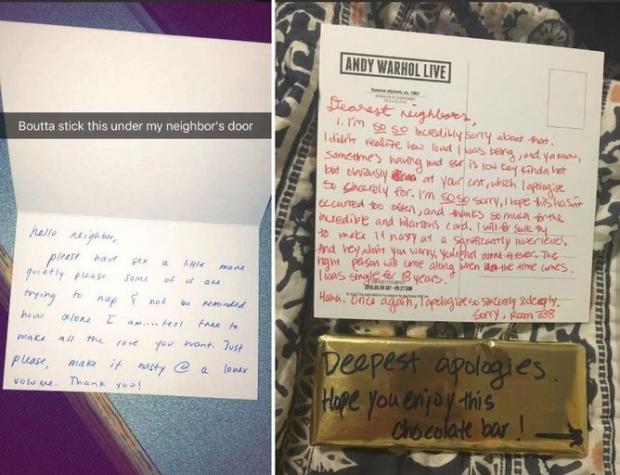 Boutta stick this under my neighbor's door
hello neighbor,
please have sex a little more
quietly please. some of us are
trying to nap & not be reminded
how alone I am....feel free to
make all the love you want. Just
please, make it nasty @ a lower
volume. Thank you!
ANDY WARHOL LIVE
Dearest neighbors,
I'm so so incredibly sorry about that.
I didn't realize how loud I was being, and ya know,
sometimes having loud sex is low key kinda hot
but obviously at your cost, which I apologize
so sincerely for. I'm so so sorry, I hope this hasn't
occurred too often, and thanks so much for the
incredible and hilarious card. I will be sure my
to make it nasty at a significantly lower level.
And hey don't you worry, you're not alone forever. The
right person will come along when the time comes.
I was single for 18 years.
Haha. Once again, I apologize so sincerely & deeply.
Sorry, Room 338
Deepest apologies.
Hope you enjoy this
chocolate bar!